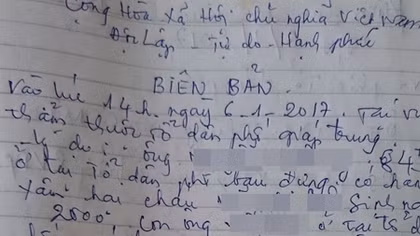 Cộng Hòa Xã Hội chủ nghĩa Việt Nam
Độc Lập - Tự do - Hạnh phúc
BIÊN BẢN
Vào lúc 14h. ngày 6-1-2017. Tại
thẩm thuộc tổ dân phố giáp trung.
Lý do: ông 84
ở tại Tổ dân phố có hà
xâm hại cháu Sinh n
2000, con ông ở tại